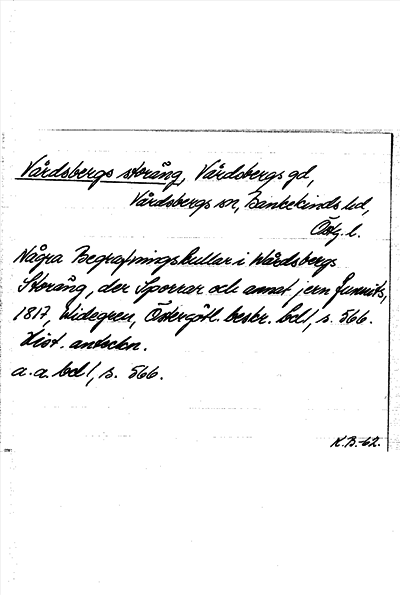 Vårdsbergs storäng, Vårdsbergs gd,
Vårdsbergs sn, Bankekinds hd,
Östg. l.
Några Begrafningskullar i Wårdsbergs
Storäng, der Sporrar och annat jern funnits,
1817, Widegren, Östergötl. beskr. bd I, s. 566.
Hist. anteckn.
a. a. bd I, s. 566.
K.B.-62.